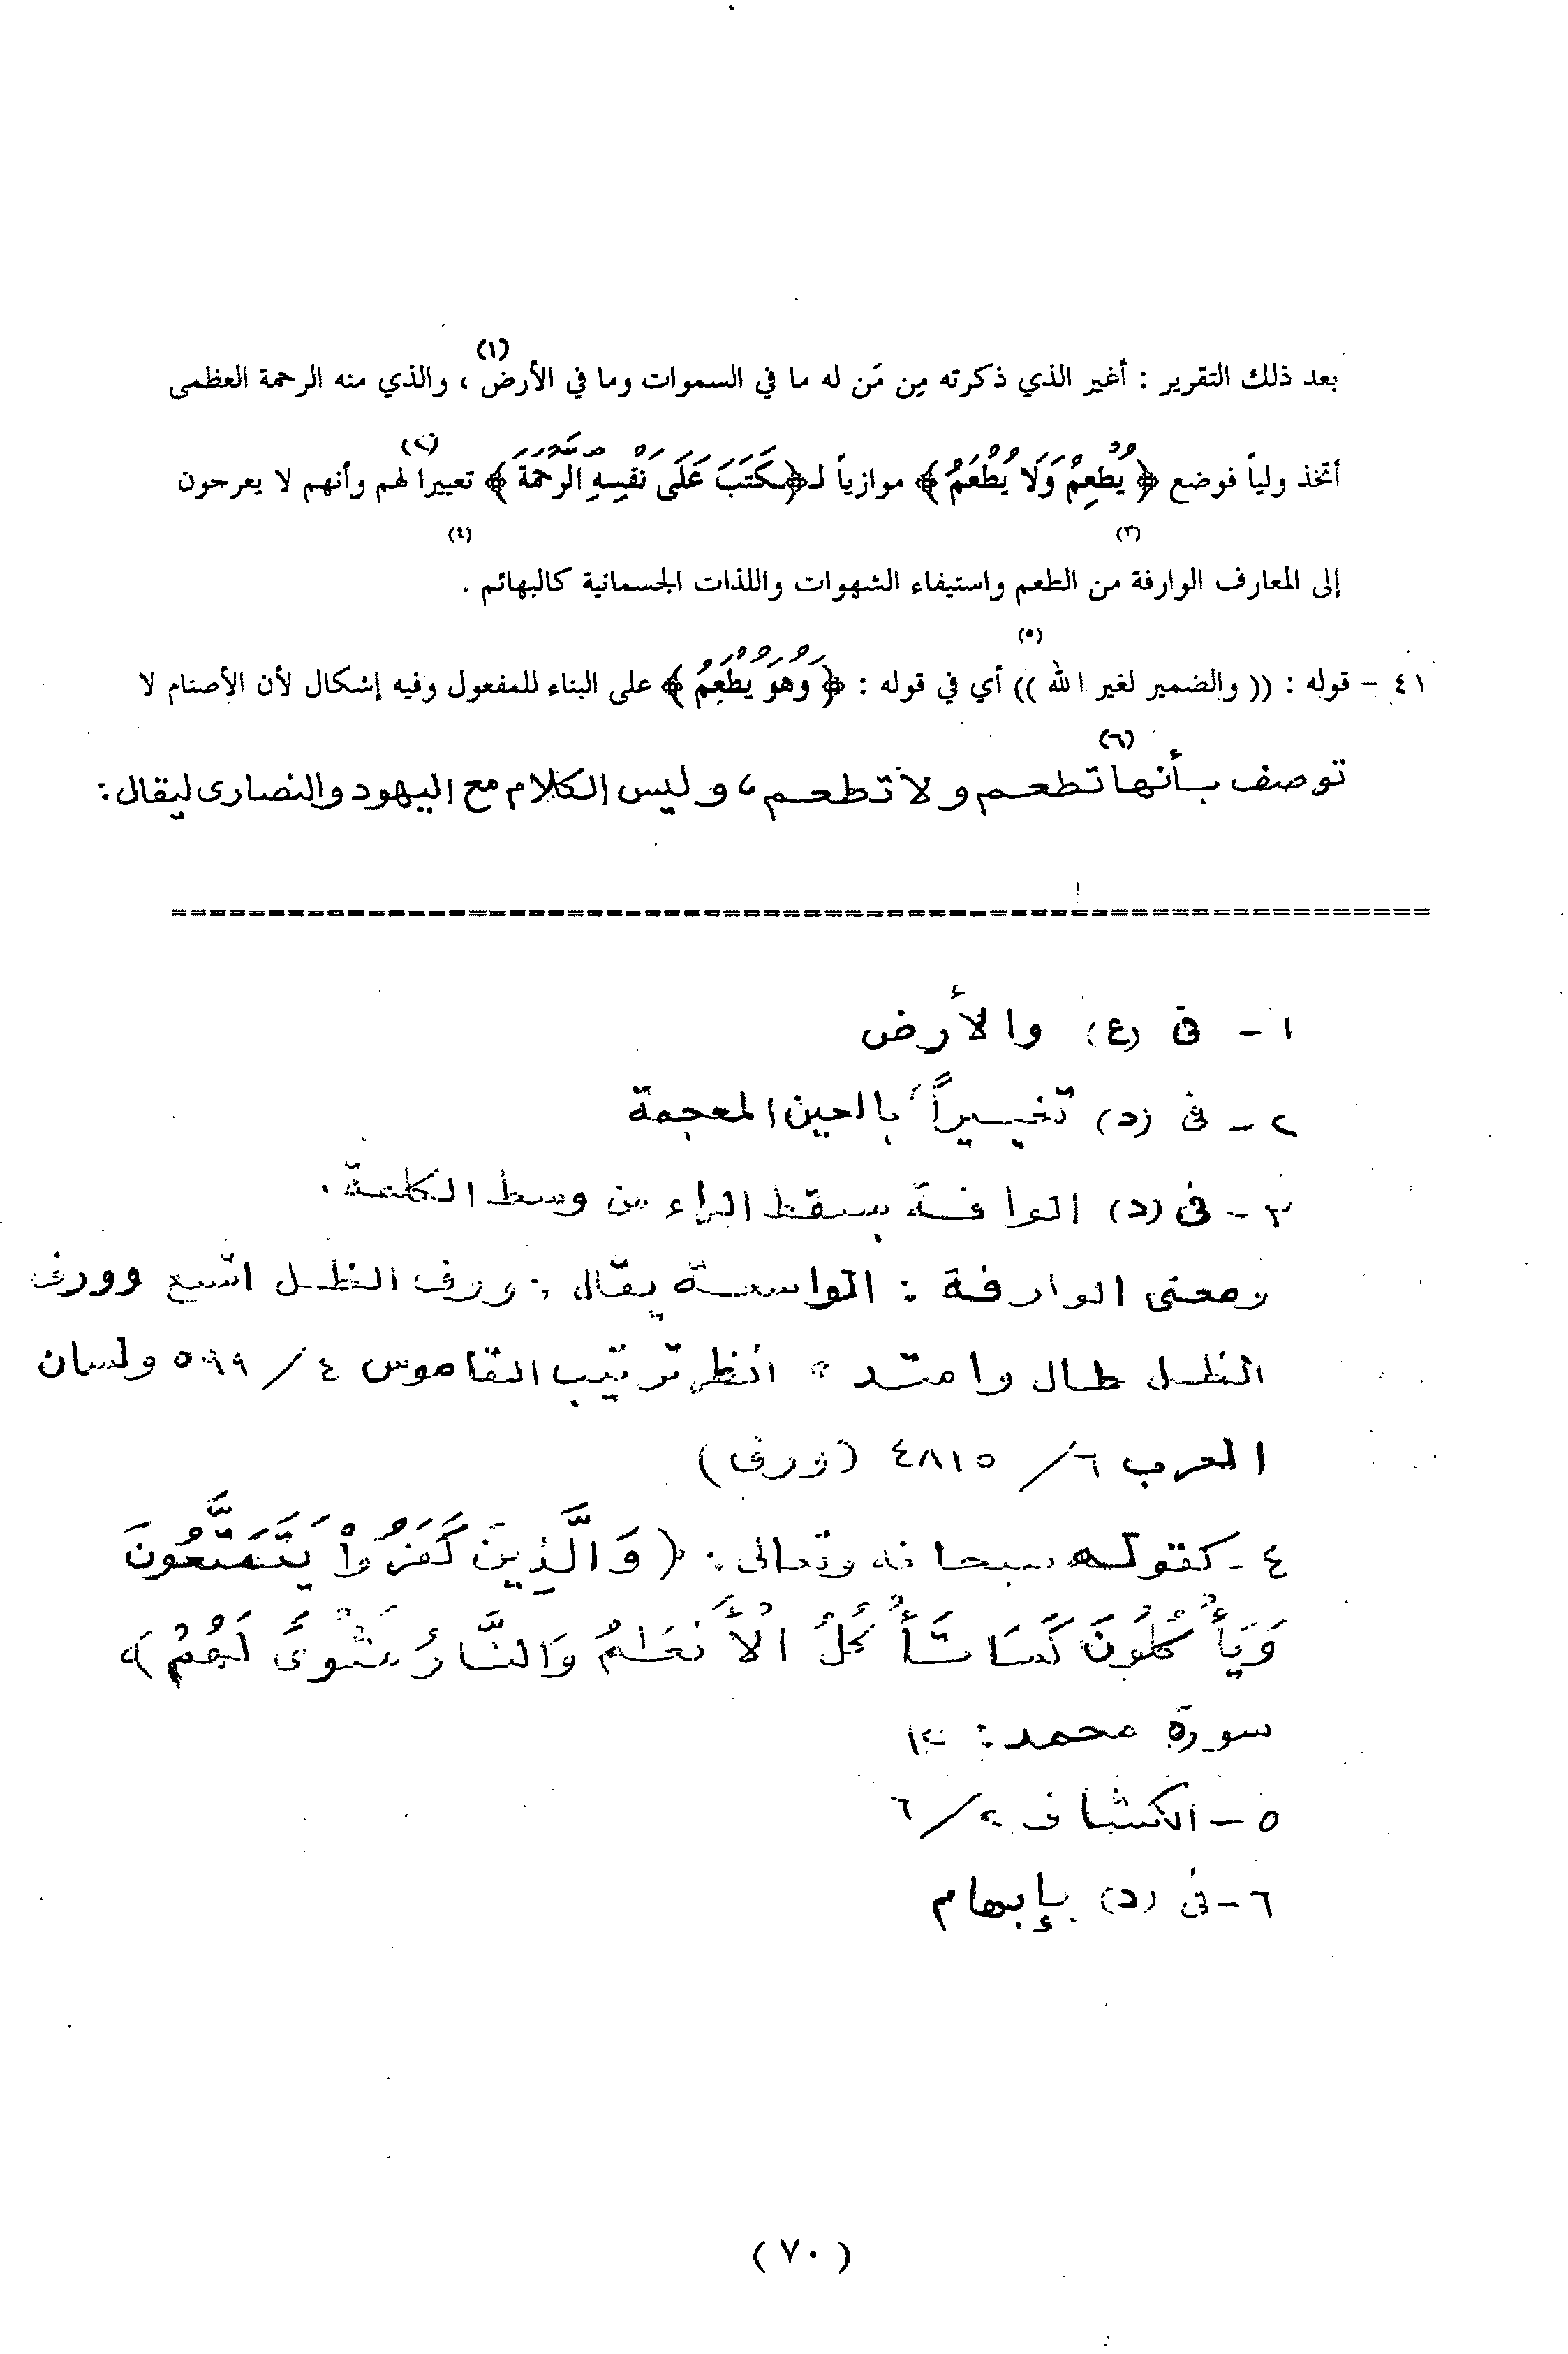 (١)
بعد ذلك التقرير : أغير الذي ذكرته مِن مَن له ما في السموات وما في الأرض ، والذي منه الرحمة العظمى
(٢)
أتخذ ولياً فوضع ﴿ يُطْعِمُ وَلَا يُطْعَمُ ﴾ موازياً لـ﴿كَتَبَ عَلَى نَفْسِهِ الرَّحْمَةَ ﴾ تعييرا لهم وأنهم لا يعرجون
(٣) (٤)
إلى المعارف الوارفة من الطعم واستيفاء الشهوات واللذات الجسمانية كالبهائم .
(٥)
٤١ - قوله : (( والضمير لغير الله )) أي في قوله : ﴿ وَهُوَ يُطْعَمُ ﴾ على البناء للمفعول وفيه إشكال لأن الأصنام لا
(٦)
توصف بأنها تطعم ولا تطعم ، وليس الكلام مع اليهود والنصارى ليقال :
١ - فى (ع) والأرض
٢ - فى (د) تغييراً بالعين المعجمة
٣ - فى (د) الوافة بسقط الراء من وسط الكلمة .
ومعنى الوارفة : الواسعة يقال : ورف الظل اتسع وورف
الظل طال وامتد " انظر ترتيب القاموس ٤/ ٥٩٩ ولسان
العرب ٦/ ٤٨١٥ (ورف)
٤ - كقوله سبحانه وتعالى : ( وَالَّذِينَ كَفَرُواْ يَتَمَتَّعُونَ
وَيَأْكُلُونَ كَمَا تَأْكُلُ الْأَنْعَامُ وَالنَّارُ مَثْوًى لَهُمْ )
سورة محمد : ١٢
٥ - الكشاف ٢/ ٦
٦ - فى (د) بإبهام
( ٧٠ )